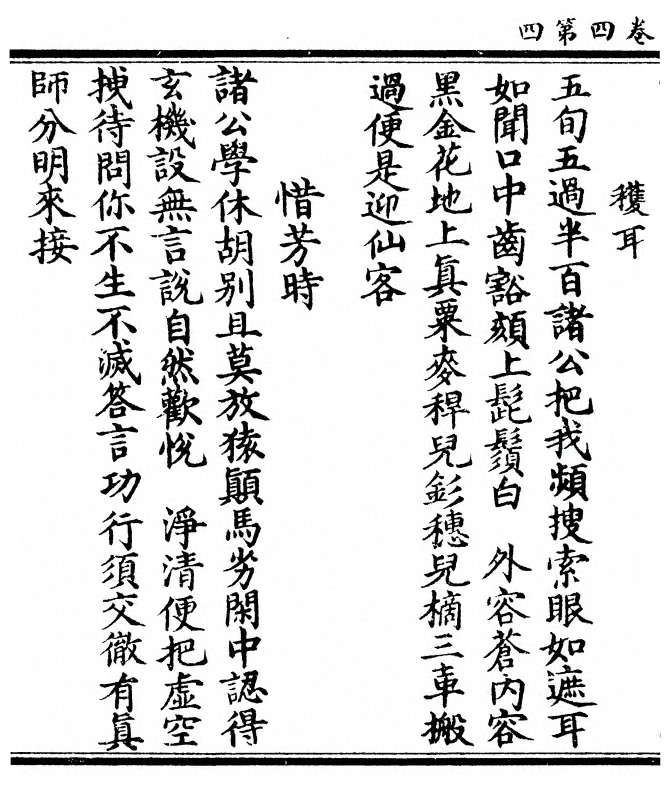 卷四第四
穫耳
五旬五過半百諸公把我頻搜索眼如遮耳
如聞口中齒豁頦上髭鬚白　外容蒼內容
黑金花地上眞粟麥稈兒釤穗兒樀三車搬
過便是迎仙客
惜芳時
諸公學休胡别且莫放猿顚馬劣閑中認得
玄機設無言說自然歡悅　淨清便把虛空
拽待問你不生不滅答言功行須交徹有眞
師分明來接